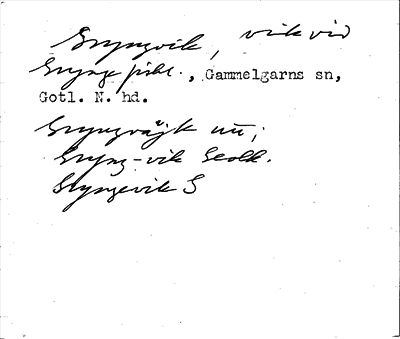 Gryngvik, vik vid
Grynge fiskl., Gammelgarns sn,
Gotl. N. hd.
Gryngväjk uu;
Gryng-vik Geolk.
Gryngevik S